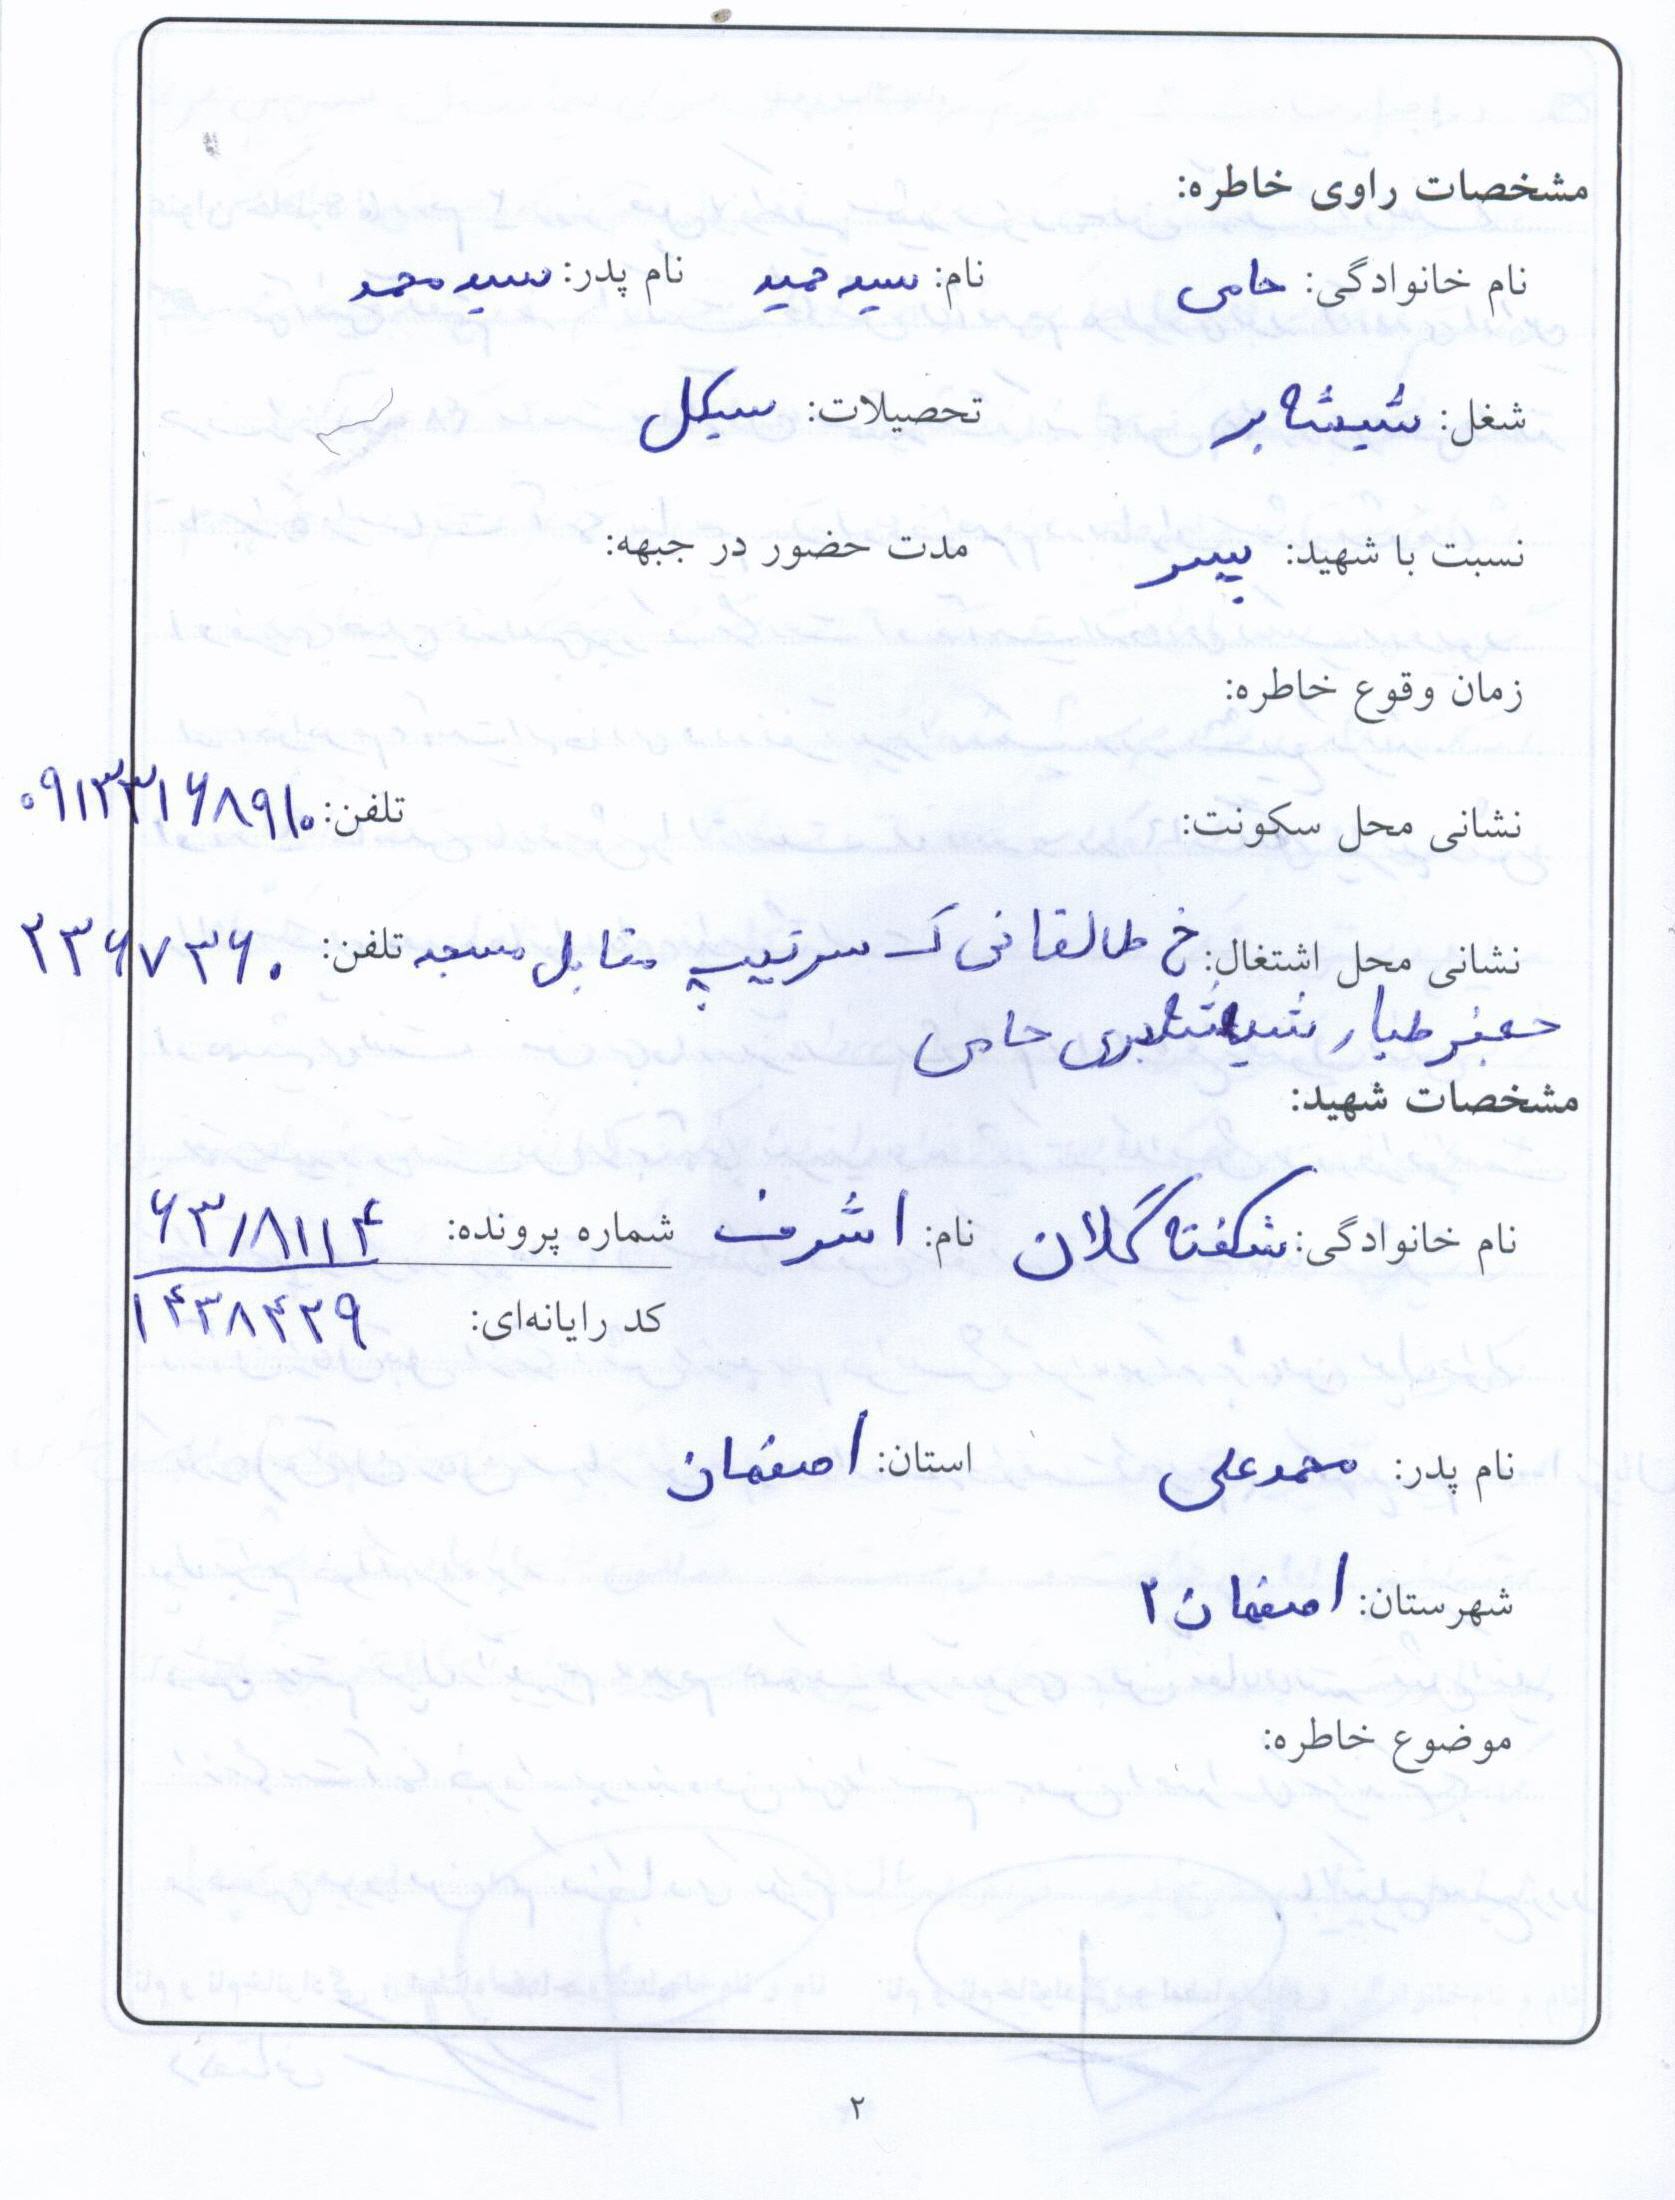 مشخصات راوی خاطره:
نام خانوادگی: حامی نام: سید حمید نام پدر: سید محمد
شغل: شیشه بر تحصیلات: سیکل
نسبت با شهید: پسر مدت حضور در جبهه:
زمان وقوع خاطره:
نشانی محل سکونت: تلفن: ۰۹۱۳۳۱۶۸۹۱۰
نشانی محل اشتغال: خ طالقانی ک سرتیپ مقابل مسجد تلفن: ۲۳۶۷۳۶۰
جعفر طیار شیشه‌بری حامی
مشخصات شهید:
نام خانوادگی: شکفته گلان نام: اشرف شماره پرونده: ۶۳/۸۱۱۴
کد رایانه‌ای: ۱۴۳۸۴۲۹
نام پدر: محمدعلی استان: اصفهان
شهرستان: اصفهان ۲
موضوع خاطره:
۲